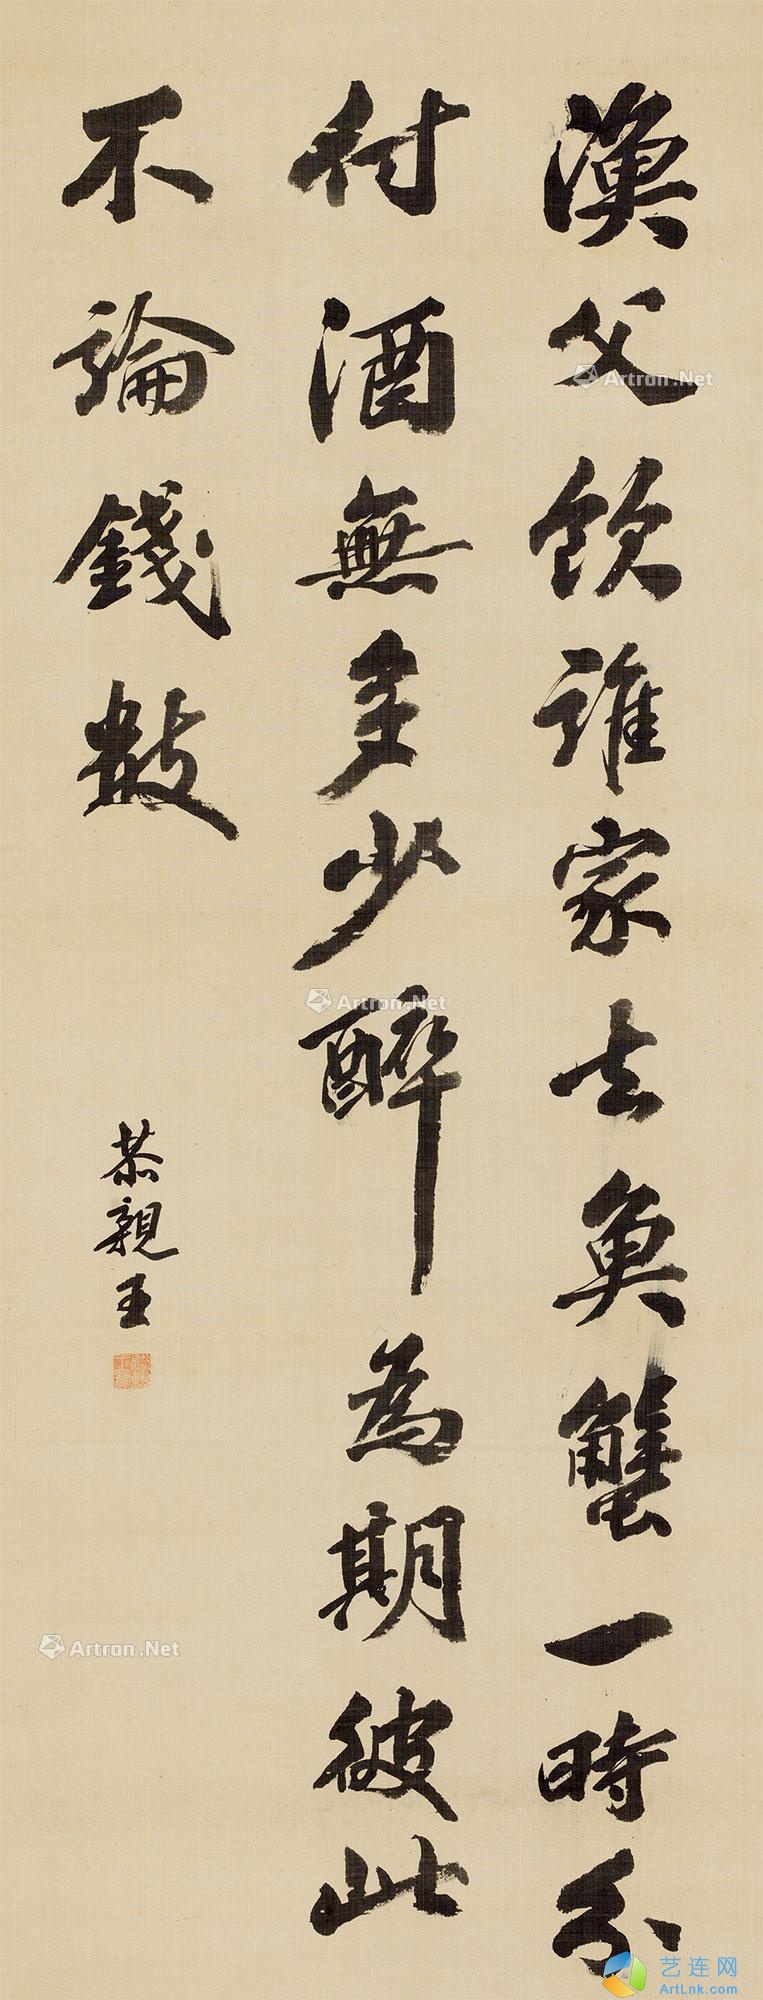 漁父飲誰家去魚蟹一時分
付酒無多少醉為期彼此
不論錢數
恭親王
Artron.Net
Artron.Net
Artron.Net
艺连网
ArtLnk.com